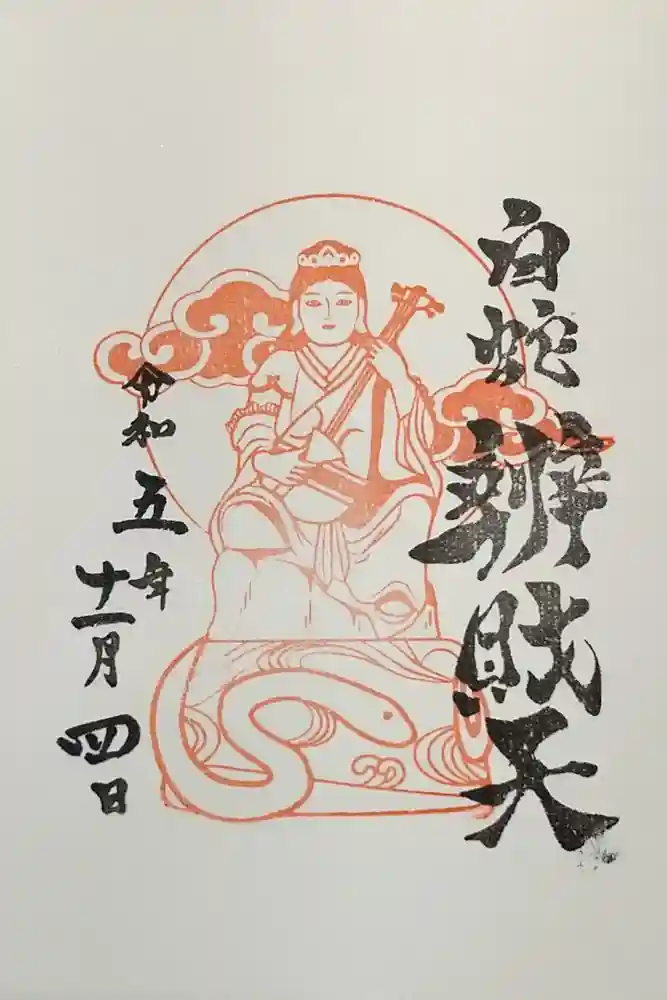 白蛇辨財天
令和五年
十一月四日